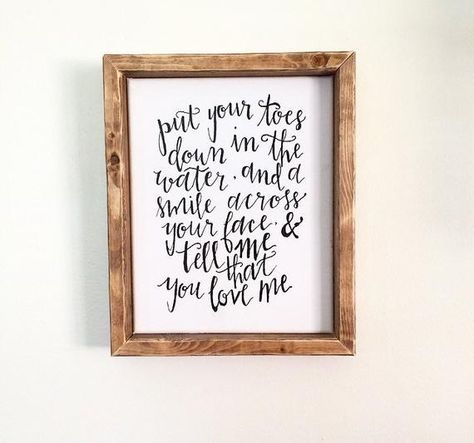 put your toes
down in the
water. and a
smile across
your face. &
tell me
that
you love me